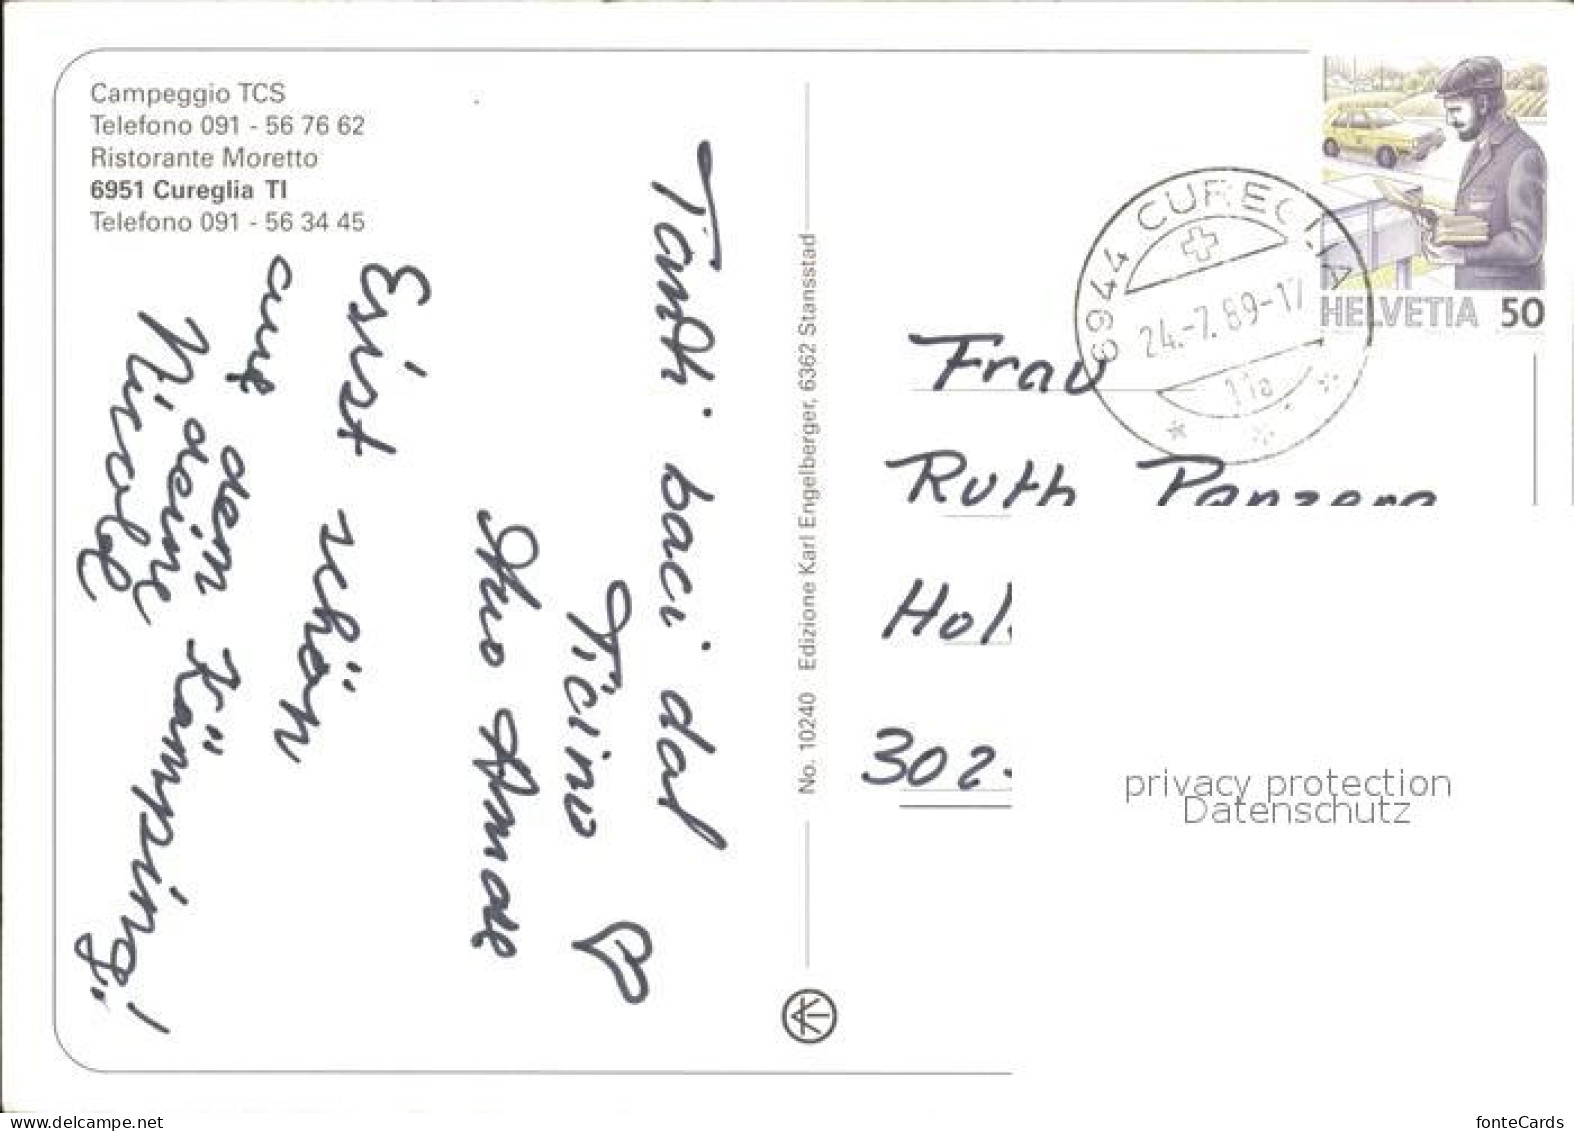 Campeggio TCS
Telefono 091 - 56 76 62
Ristorante Moretto
6951 Cureglia TI
Telefono 091 - 56 34 45
Tanti baci dal
Ticino
Esist schön
auf dem Kämping!
deine
Nicole
No. 10240 Edizione Karl Engelberger, 6362 Stansstad
6944 CUREGLIA
24.-7.89-17
11a
HELVETIA 50
Frau
Ruth Panzera
Hol
302
privacy protection
Datenschutz
www.delcampe.net
fonteCards